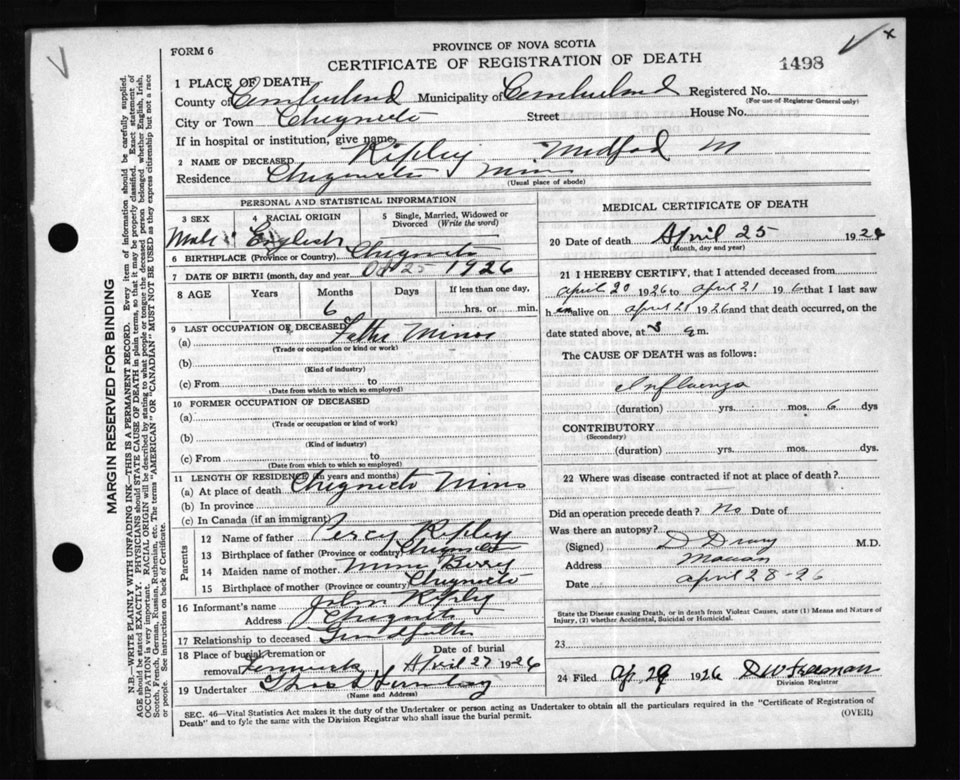 FORM 6
PROVINCE OF NOVA SCOTIA
CERTIFICATE OF REGISTRATION OF DEATH
1498
x
MARGIN RESERVED FOR BINDING
N.B.—WRITE PLAINLY WITH UNFADING INK—THIS IS A PERMANENT RECORD. Every item of information should be carefully supplied.
AGE should be stated EXACTLY. PHYSICIANS should STATE CAUSE OF DEATH in plain terms, so that it may be properly classified. Exact statement of
OCCUPATION is very important. RACIAL ORIGIN will be described by stating to what people or tongue the deceased person belonged whether English, Irish,
Scotch, French, German, Russian, Ruthenian, etc. The terms "AMERICAN" OR "CANADIAN" MUST NOT BE USED as they express citizenship but not a race
or people. See instructions on back of Certificate.
1 PLACE OF DEATH
County of Cumberland Municipality of Cumberland Registered No.
(For use of Registrar General only)
City or Town Chignecto Street House No.
If in hospital or institution, give name
2 NAME OF DECEASED Ripley Medford M
Residence Chignecto Mines
(Usual place of abode)
PERSONAL AND STATISTICAL INFORMATION
3 SEX 4 RACIAL ORIGIN 5 Single, Married, Widowed or Divorced (Write the word)
Male English
6 BIRTHPLACE (Province or Country) Chignecto
7 DATE OF BIRTH (month, day and year) Oct 25 1926
8 AGE Years Months Days If less than one day,
6 hrs. or min.
9 LAST OCCUPATION OF DECEASED
(a) Mines
(Trade or occupation or kind or work)
(b)
(Kind of industry)
(c) From to
(Date from which to which so employed)
10 FORMER OCCUPATION OF DECEASED
(a)
(Trade or occupation or kind of work)
(b)
(Kind of industry)
(c) From to
(Date from which to which so employed)
11 LENGTH OF RESIDENCE (in years and months)
(a) At place of death Chignecto Mines
(b) In province
(c) In Canada (if an immigrant)
Parents
12 Name of father Percy Ripley
13 Birthplace of father (Province or country) Chignecto
14 Maiden name of mother Berry
15 Birthplace of mother (Province or country) Chignecto
16 Informant's name John Ripley
Address Chignecto
17 Relationship to deceased Grandfather
18 Place of burial, cremation or removal Fenwick Date of burial April 27 1926
19 Undertaker
(Name and Address)
MEDICAL CERTIFICATE OF DEATH
20 Date of death April 25 1926
(Month, day and year)
21 I HEREBY CERTIFY, that I attended deceased from
april 20 1926 to april 21 1926 that I last saw
him alive on april 21 1926 and that death occurred, on the
date stated above, at 8 a m.
The CAUSE OF DEATH was as follows:
Influenza
(duration) yrs. mos. 6 dys
CONTRIBUTORY
(Secondary)
(duration) yrs. mos. dys
22 Where was disease contracted if not at place of death?
Did an operation precede death? No Date of
Was there an autopsy?
(Signed) D Drury M.D.
Address Maccan
Date april 28-26
State the Disease causing Death, or in death from Violent Causes, state (1) Means and Nature of
Injury, (2) whether Accidental, Suicidal or Homicidal.
23
24 Filed Ap 29 1926 D W Freeman
Division Registrar
SEC. 46—Vital Statistics Act makes it the duty of the Undertaker or person acting as Undertaker to obtain all the particulars required in the "Certificate of Registration of
Death" and to fyle the same with the Division Registrar who shall issue the burial permit.
(OVER)